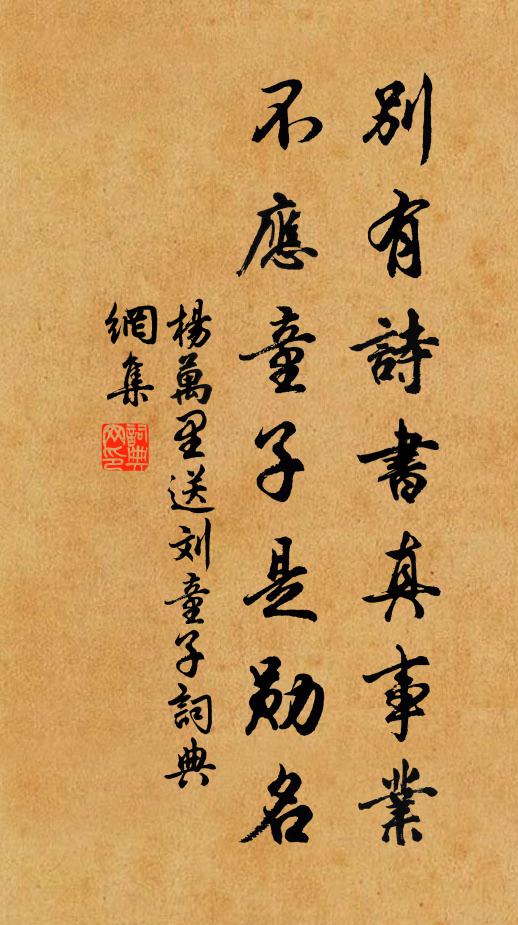 別有詩書真事業
不應童子是勛名
楊萬里送刘童子詞典
網集
詞典网印